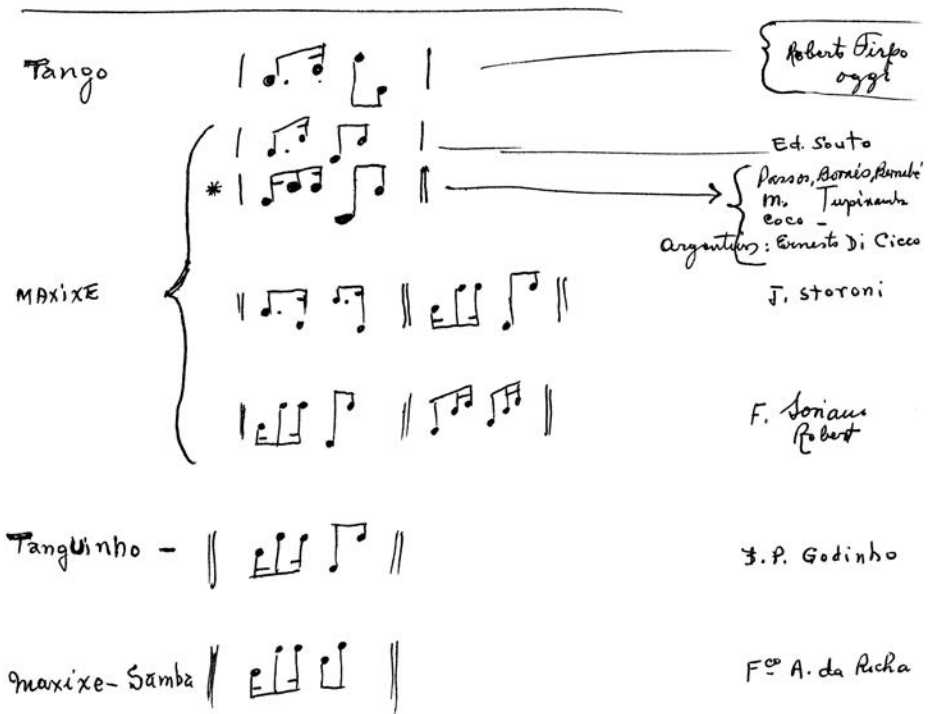 Tango
Roberto Firpo
oggi
Ed. Souto
*
Passos,
M. Tupinamba
coco -
Argentinos: Ernesto Di Cicco
MAXIXE
J. Storoni
F. Soriano
Robert
TangUinho -
J.P. Godinho
Maxixe-Samba
Fco A. da Rocha